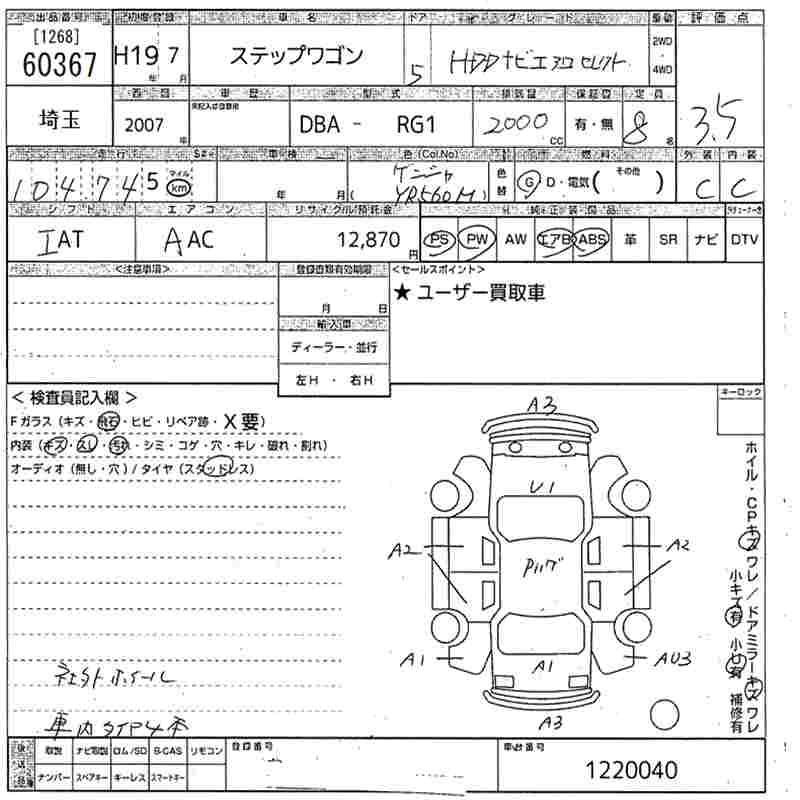 出品番号 初度登録 車名 ドア グレード 駆動 評価点
[1268]
60367 H19 7 ステップワゴン 5 HDDナビエアロセレクト 2WD・4WD 3.5
年 月
埼玉 西暦 車歴 型式 排気量 保証書 定員
未記入は自家用
2007 年 DBA - RG1 2000 CC 有・無 8 名
走行 S# 車検 色(Col.No) 燃料 外装 内装
104,745 マイル km 年 月 ( YR560M) 色替 G・D・電気( その他 ) C C
シフト エアコン リサイクル預託金 純正装備品
IAT AAC 12,870 円 PS PW AW エアB ABS 革 SR ナビ DTV
<注意事項> 登録書類有効期限 <セールスポイント>
月 日 ★ ユーザー買取車
輸入車
ディーラー・並行
左H ・ 右H
< 検査員記入欄 > キーロック
Fガラス (キズ・飛石・ヒビ・リペア跡・X要)
内装 (キズ・スレ・汚れ・シミ・コゲ・穴・キレ・破れ・割れ)
オーディオ (無し・穴) / タイヤ (スタッドレス)
A3
U1
A2 A2
A1 A1 AU3
A3
ホイル・CPキズワレ/ドアミラーキズワレ
小キズ有 小U有 補修有
社外ホイール
車内タイヤ4本
後送品 取説 ナビ取説 ロム/SD B-CAS リモコン 登録番号 車台番号
ナンバー スペアキー キーレス スマートキー 1220040